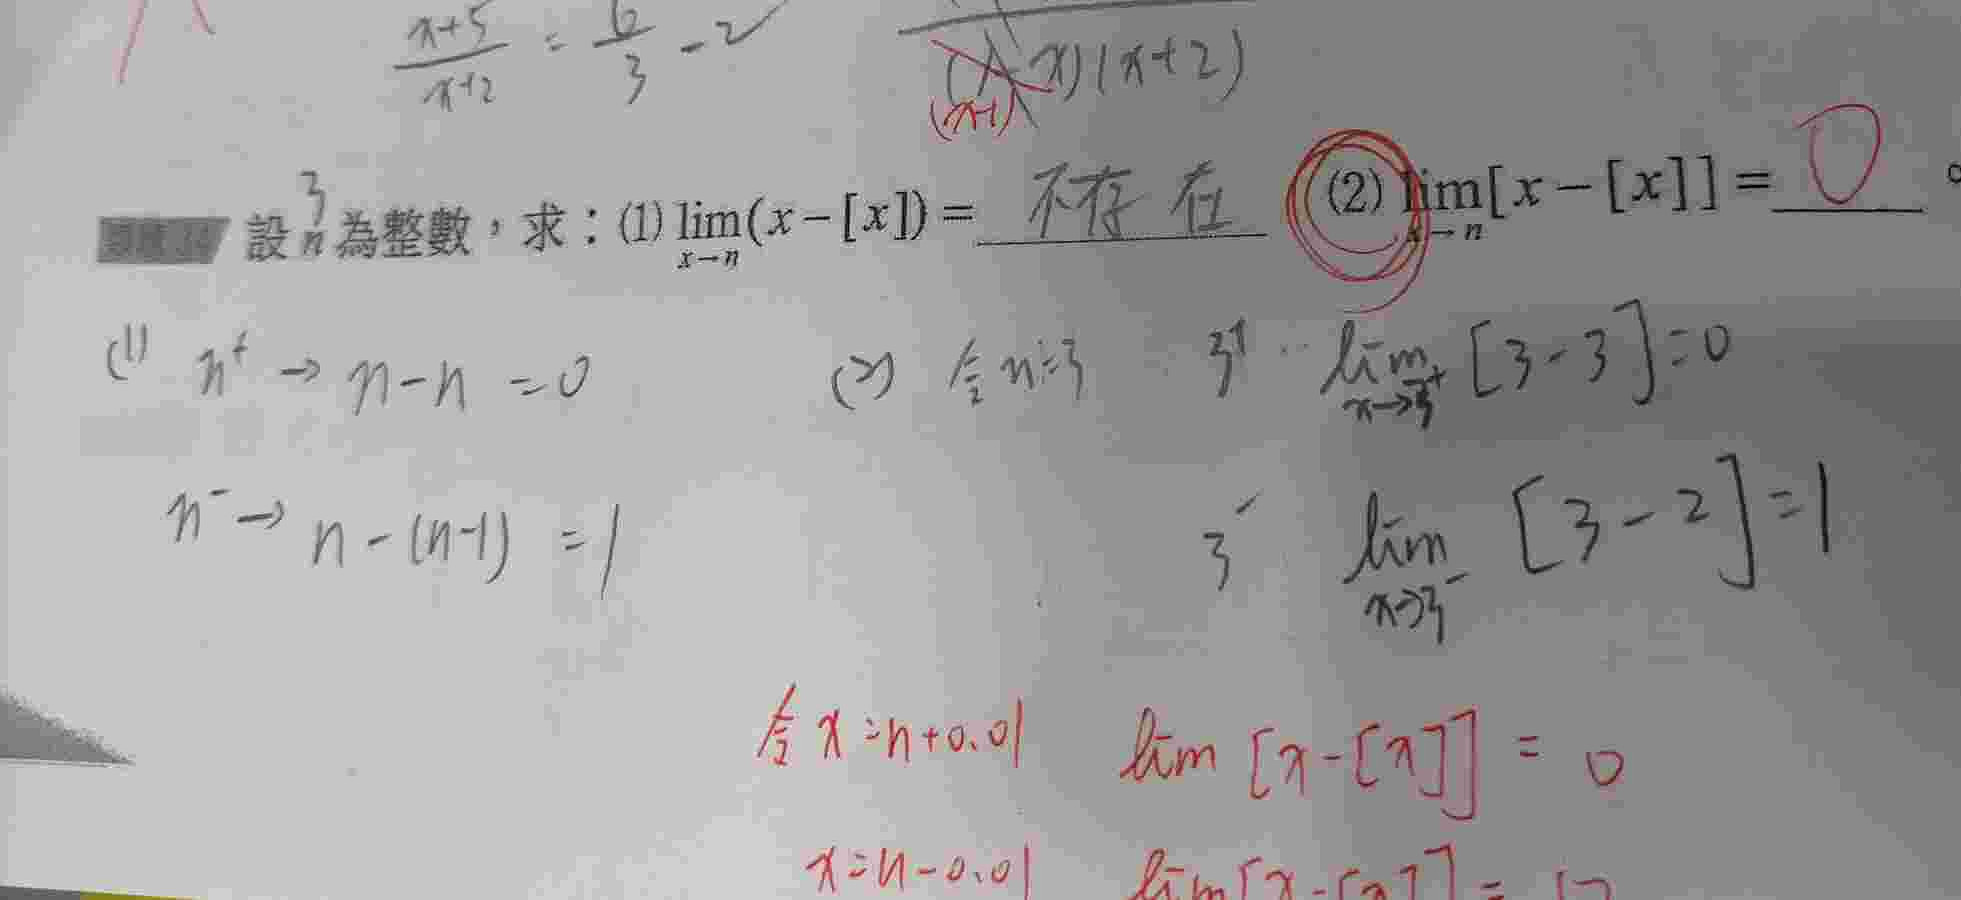 x+5/x+2 = 6/3 = 2
(1-x)(x+2)
(x-1)
3
設n為整數，求：(1) lim x→n (x-[x]) = 不存在 (2) lim x→n [x-[x]] = 0 。
(1) n⁺ → n-n = 0
(2) 令n=3 3⁺ lim x→3⁺ [3-3]=0
n⁻ → n-(n-1) = 1
3⁻ lim x→3⁻ [3-2]=1
令 x=n+0.01 lim [x-[x]] = 0
x=n-0.01 lim [x-[x]] =